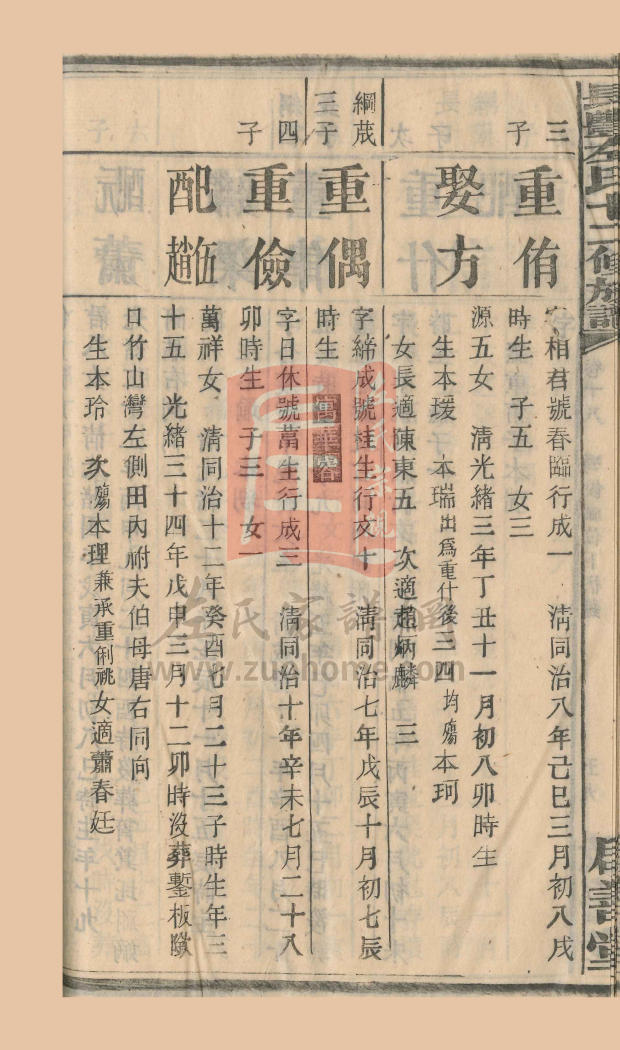 長豐左氏十二修族譜
卷十八
三子
重侑
字相君號春臨行成一 清同治八年己巳三月初八戌
時生 子五 女三
娶方
源五女 清光緒三年丁丑十一月初八卯時生
生本瑗 本瑞出爲重什後三四均殤本珂
女長適陳東五 次適趙炳麟 三
綱葴三子
重偶
字締成號桂生行文十 清同治七年戊辰十月初七辰
時生
四子
重儉
字日休號萬生行成三 清同治十年辛未七月二十八
卯時生 子三 女一
配趙伍
萬祥女 清同治十二年癸酉七月二十三子時生年三
十五 光緒三十四年戊申三月十二卯時沒葬鑿板𡺳
口竹山灣左側田內祔夫伯母唐右同向
生本玲 次殤本理兼承重俐祧女適蕭春廷
左氏家譜網
www.zuohome.com